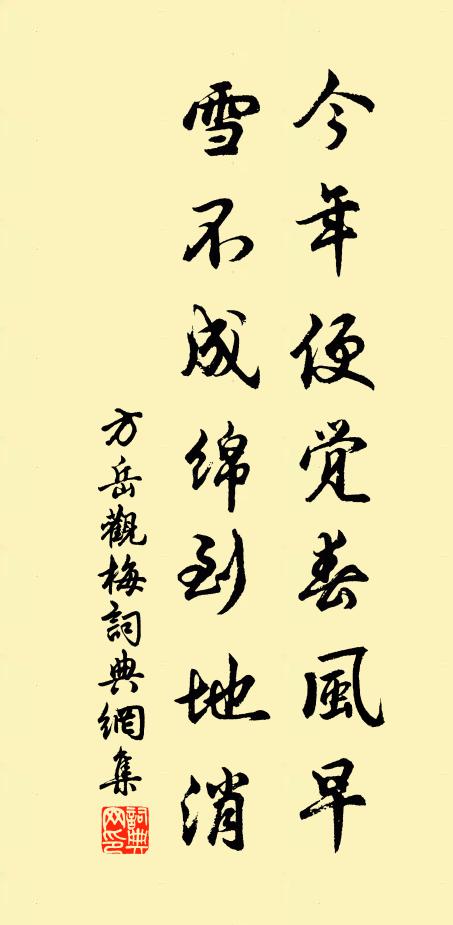 今年便觉春風早
雪不成綿到地消
方岳觀梅詞典網集
詞典网印